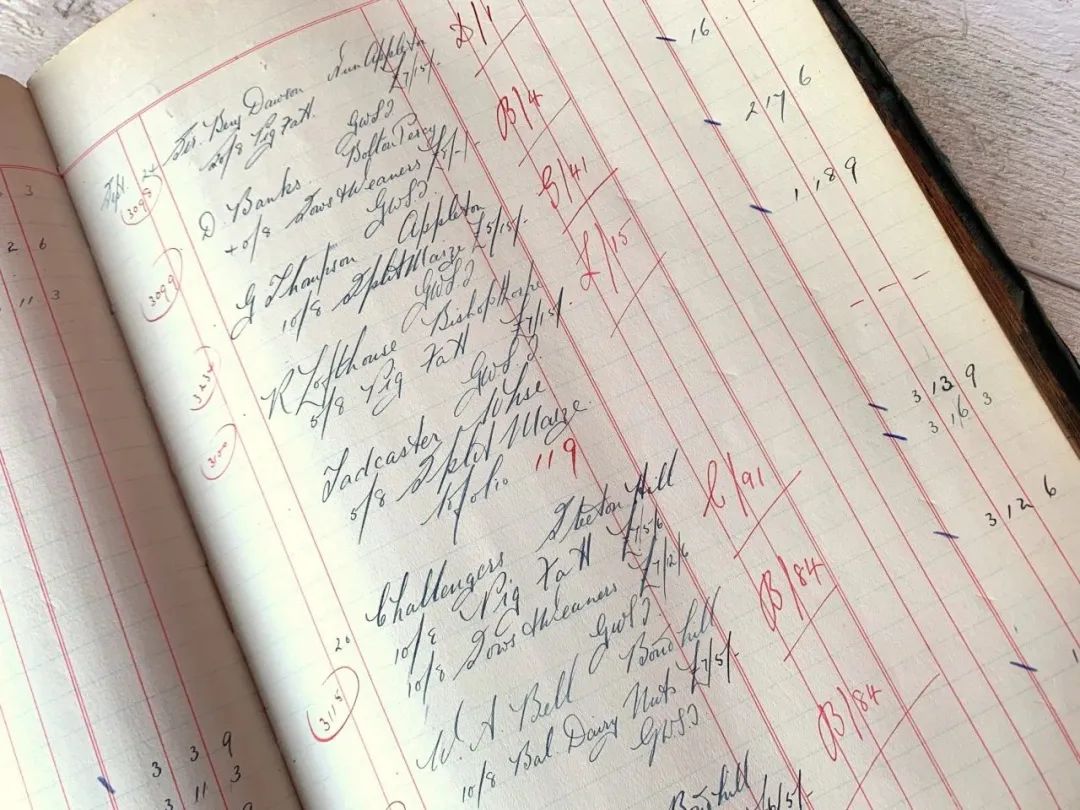 3
2 6
11 3
3 9
3 11 3
8 3
Sept. 24
Sir. Benj Dawson Nun Appleton D/1
20/8 Pig Fatt. £7/15/- 16
3098 GWSI
D. Banks. Bolton Percy B/4
40/8 Sows & Weaners £8/-/- 2 17 6
3099 GWSI
G Thompson Appleton G/41
10/8 Split Maize £5/15/- 1 18 9
GWSI
R Lofthouse Bishopthorpe L/15
5/8 Pig Fatt £7/15/-
GWSI
Tadcaster
5/8 Split Maize
folio 119
3 13 9
3 16 3
Challengers Steeton Hill C/91
10/8 Pig Fatt £7/5/6
10/8 Sows & Weaners £7/2/6 3 12 6
3115 GWSI
W. A. Bell Bondhill B/84
10/8 Bal Dairy Nuts £7/5/-
GWSI
B/84